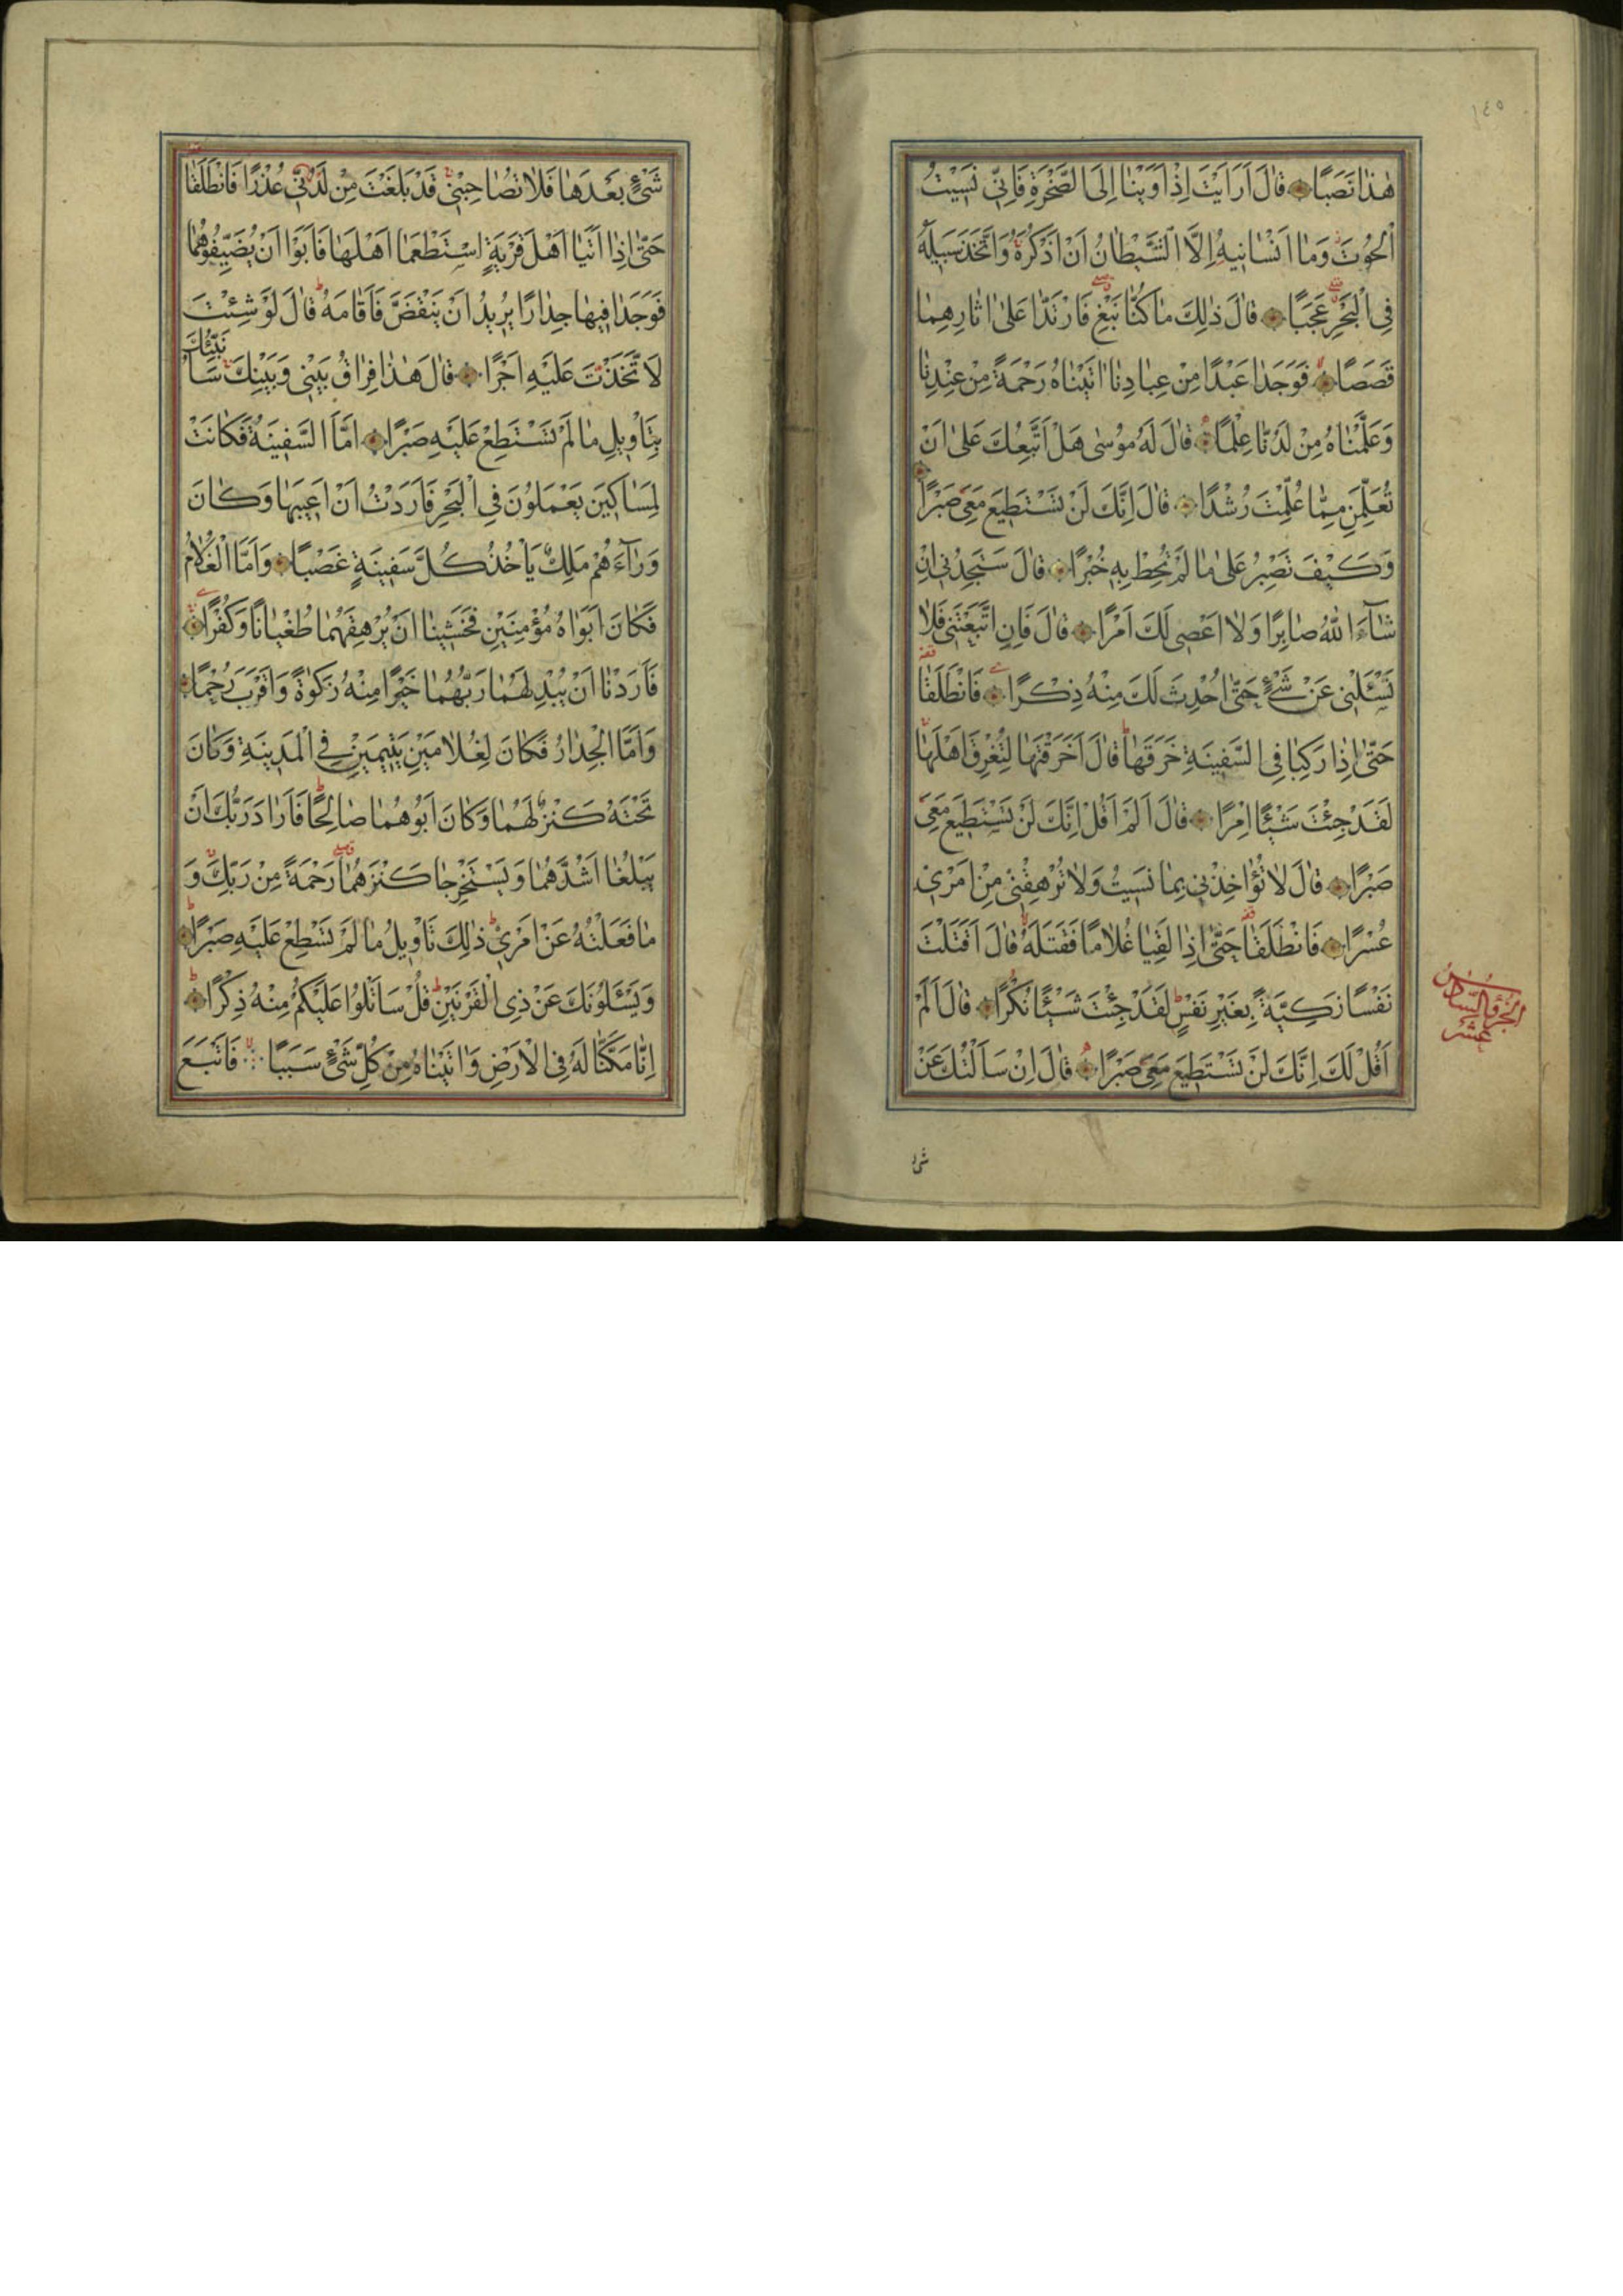 ١٤٥
هٰذَا نَصَبًا قَالَ اَرَاَيْتَ اِذْ اَوَيْنَا اِلَى الصَّخْرَةِ فَاِنِّى نَسِيْتُ
الْحُوتَ وَمَا اَنْسَانِيهُ اِلَّا الشَّيْطَانُ اَنْ اَذْكُرَهُ وَاتَّخَذَ سَبِيلَهُ
فِى الْبَحْرِ عَجَبًا قَالَ ذٰلِكَ مَا كُنَّا نَبْغِ فَارْتَدَّا عَلٰى اٰثَارِهِمَا
قَصَصًا فَوَجَدَا عَبْدًا مِنْ عِبَادِنَا اٰتَيْنَاهُ رَحْمَةً مِنْ عِنْدِنَا
وَعَلَّمْنَاهُ مِنْ لَدُنَّا عِلْمًا قَالَ لَهُ مُوسٰى هَلْ اَتَّبِعُكَ عَلٰى اَنْ
تُعَلِّمَنِ مِمَّا عُلِّمْتَ رُشْدًا قَالَ اِنَّكَ لَنْ تَسْتَطِيعَ مَعِىَ صَبْرًا
وَكَيْفَ تَصْبِرُ عَلٰى مَا لَمْ تُحِطْ بِهِ خُبْرًا قَالَ سَتَجِدُنِى اِنْ
شَآءَ اللهُ صَابِرًا وَلَا اَعْصِى لَكَ اَمْرًا قَالَ فَاِنِ اتَّبَعْتَنِى فَلَا
تَسْـَٔلْنِى عَنْ شَىْءٍ حَتّٰى اُحْدِثَ لَكَ مِنْهُ ذِكْرًا فَانْطَلَقَا
حَتّٰى اِذَا رَكِبَا فِى السَّفِينَةِ خَرَقَهَا قَالَ اَخَرَقْتَهَا لِتُغْرِقَ اَهْلَهَا
لَقَدْ جِئْتَ شَيْئًا اِمْرًا قَالَ اَلَمْ اَقُلْ اِنَّكَ لَنْ تَسْتَطِيعَ مَعِىَ
صَبْرًا قَالَ لَا تُؤَاخِذْنِى بِمَا نَسِيتُ وَلَا تُرْهِقْنِى مِنْ اَمْرِى
عُسْرًا فَانْطَلَقَا حَتّٰى اِذَا لَقِيَا غُلَامًا فَقَتَلَهُ قَالَ اَقَتَلْتَ
نَفْسًا زَكِيَّةً بِغَيْرِ نَفْسٍ لَقَدْ جِئْتَ شَيْئًا نُكْرًا قَالَ اَلَمْ
اَقُلْ لَكَ اِنَّكَ لَنْ تَسْتَطِيعَ مَعِىَ صَبْرًا قَالَ اِنْ سَاَلْتُكَ عَنْ
الجزؤ السادس
عشر
شئ
شَىْءٍ بَعْدَهَا فَلَا تُصَاحِبْنِى قَدْ بَلَغْتَ مِنْ لَدُنِّى عُذْرًا فَانْطَلَقَا
حَتّٰى اِذَا اَتَيَا اَهْلَ قَرْيَةٍ اسْتَطْعَمَا اَهْلَهَا فَاَبَوْا اَنْ يُضَيِّفُوهُمَا
فَوَجَدَا فِيهَا جِدَارًا يُرِيدُ اَنْ يَنْقَضَّ فَاَقَامَهُ قَالَ لَوْ شِئْتَ
لَاتَّخَذْتَ عَلَيْهِ اَجْرًا قَالَ هٰذَا فِرَاقُ بَيْنِى وَبَيْنِكَ سَاُنَبِّئُكَ
بِتَاْوِيلِ مَا لَمْ تَسْتَطِعْ عَلَيْهِ صَبْرًا اَمَّا السَّفِينَةُ فَكَانَتْ
لِمَسَاكِينَ يَعْمَلُونَ فِى الْبَحْرِ فَاَرَدْتُ اَنْ اَعِيبَهَا وَكَانَ
وَرَآءَهُمْ مَلِكٌ يَاْخُذُ كُلَّ سَفِينَةٍ غَصْبًا وَاَمَّا الْغُلَامُ
فَكَانَ اَبَوَاهُ مُؤْمِنَيْنِ فَخَشِينَا اَنْ يُرْهِقَهُمَا طُغْيَانًا وَكُفْرًا
فَاَرَدْنَا اَنْ يُبْدِلَهُمَا رَبُّهُمَا خَيْرًا مِنْهُ زَكٰوةً وَاَقْرَبَ رُحْمًا
وَاَمَّا الْجِدَارُ فَكَانَ لِغُلَامَيْنِ يَتِيمَيْنِ فِى الْمَدِينَةِ وَكَانَ
تَحْتَهُ كَنْزٌ لَهُمَا وَكَانَ اَبُوهُمَا صَالِحًا فَاَرَادَ رَبُّكَ اَنْ
يَبْلُغَا اَشُدَّهُمَا وَيَسْتَخْرِجَا كَنْزَهُمَا رَحْمَةً مِنْ رَبِّكَ وَ
مَا فَعَلْتُهُ عَنْ اَمْرِى ذٰلِكَ تَاْوِيلُ مَا لَمْ تَسْطِعْ عَلَيْهِ صَبْرًا
وَيَسْـَٔلُونَكَ عَنْ ذِى الْقَرْنَيْنِ قُلْ سَاَتْلُوا عَلَيْكُمْ مِنْهُ ذِكْرًا
اِنَّا مَكَّنَّا لَهُ فِى الْاَرْضِ وَاٰتَيْنَاهُ مِنْ كُلِّ شَىْءٍ سَبَبًا فَاَتْبَعَ